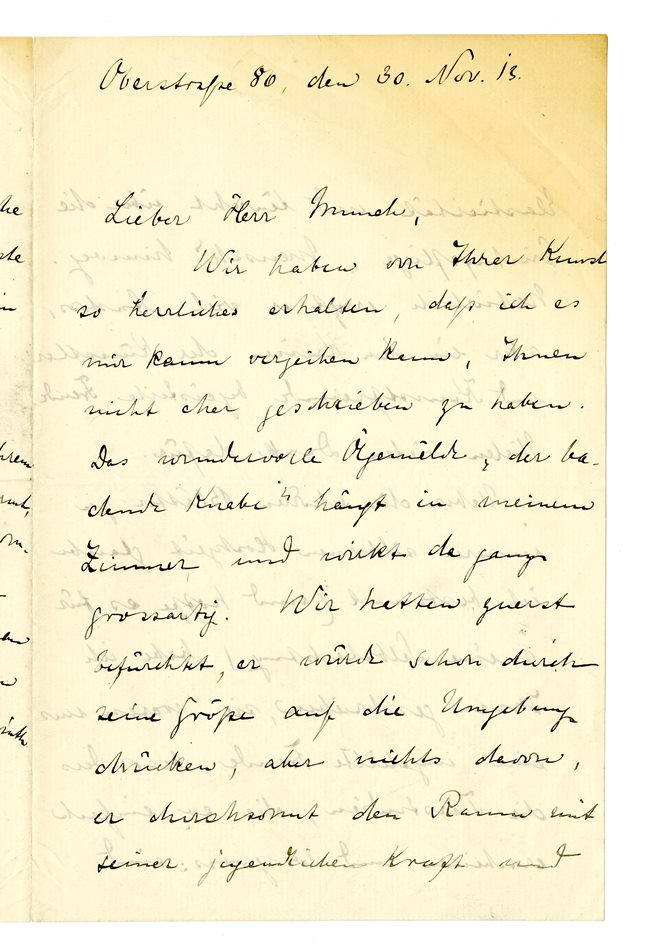 Oberstraße 80, den 30. Nov. 13.
Lieber Herr Munch,
Wir haben von Ihrer Kunst
so herrliches erhalten, daß ich es
mir kaum verzeihen kann, Ihnen
nicht eher geschrieben zu haben.
Das wundervolle Ölgemälde „der ba-
dende Knabe" hängt in meinem
Zimmer und wirkt da ganz
grossartig. Wir hatten zuerst
befürchtet, er würde schon durch
seine Größe auf die Umgebung
drücken, aber nichts davon,
er durchsonnt den Raum mit
seiner jugendlichen Kraft und